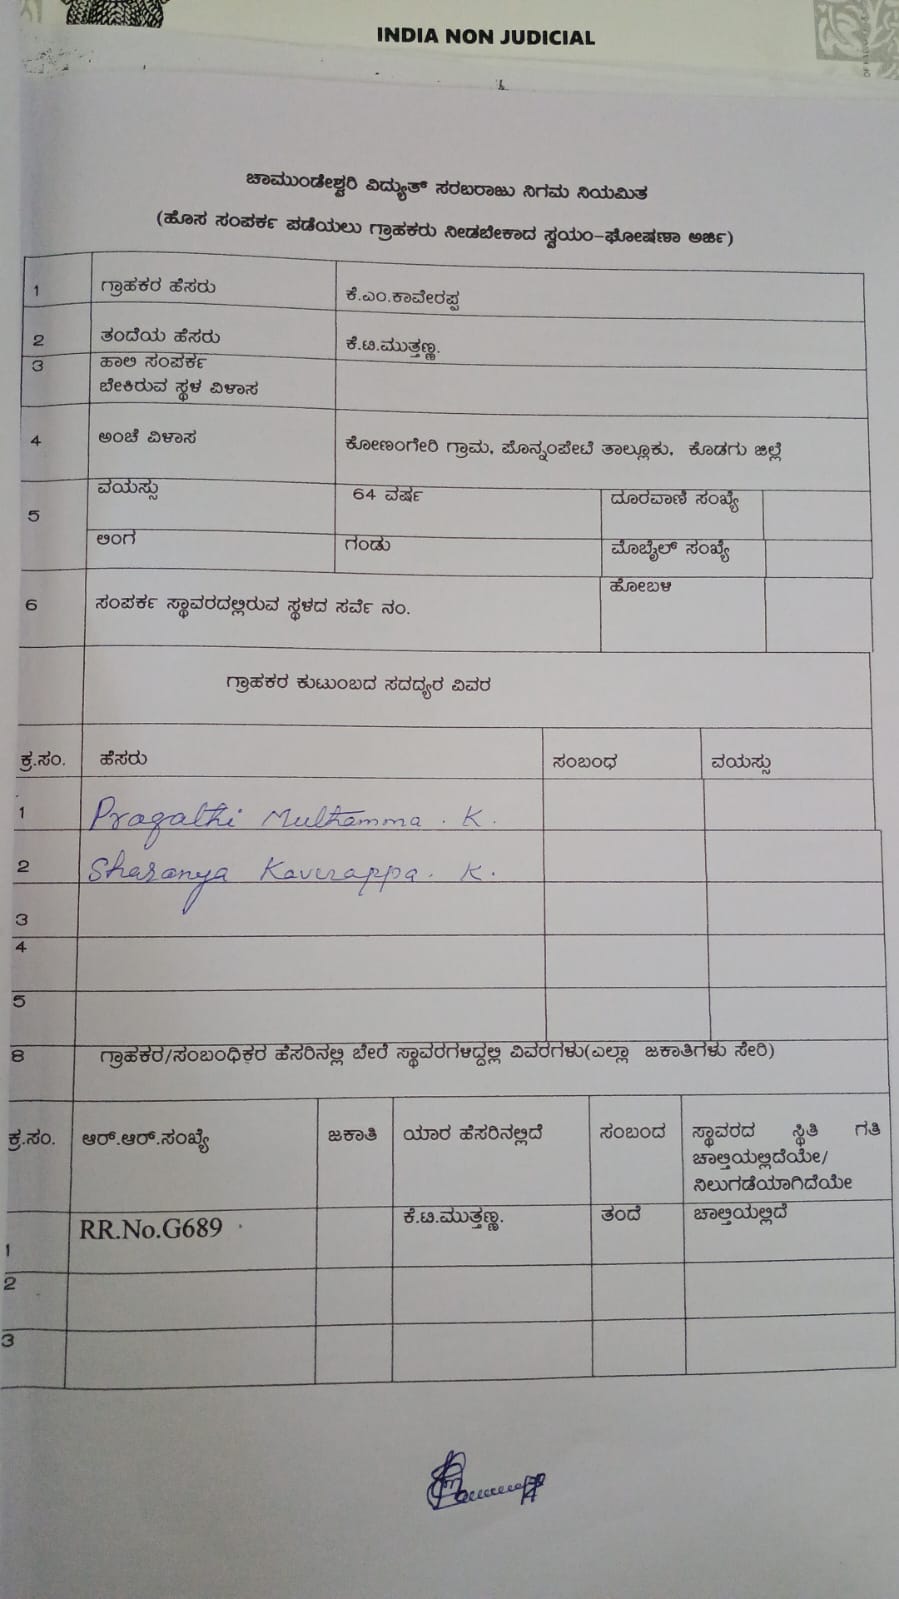 INDIA NON JUDICIAL
ಚಾಮುಂಡೇಶ್ವರಿ ವಿದ್ಯುತ್ ಸರಬರಾಜು ನಿಗಮ ನಿಯಮಿತ
(ಹೊಸ ಸಂಪರ್ಕ ಪಡೆಯಲು ಗ್ರಾಹಕರು ನೀಡಬೇಕಾದ ಸ್ವಯಂ-ಘೋಷಣಾ ಅರ್ಜಿ)
1 ಗ್ರಾಹಕರ ಹೆಸರು ಕೆ.ಎಂ.ಕಾವೇರಪ್ಪ
2 ತಂದೆಯ ಹೆಸರು ಕೆ.ಟಿ.ಮುತ್ತಣ್ಣ.
3 ಹಾಲಿ ಸಂಪರ್ಕ
ಬೇಕಿರುವ ಸ್ಥಳ ವಿಳಾಸ
4 ಅಂಚೆ ವಿಳಾಸ ಕೋಣಂಗೇರಿ ಗ್ರಾಮ, ಪೊನ್ನಂಪೇಟೆ ತಾಲ್ಲೂಕು, ಕೊಡಗು ಜಿಲ್ಲೆ
5 ವಯಸ್ಸು 64 ವರ್ಷ ದೂರವಾಣಿ ಸಂಖ್ಯೆ
ಲಿಂಗ ಗಂಡು ಮೊಬೈಲ್ ಸಂಖ್ಯೆ
6 ಸಂಪರ್ಕ ಸ್ಥಾವರದಲ್ಲಿರುವ ಸ್ಥಳದ ಸರ್ವೆ ನಂ. ಹೋಬಳಿ
ಗ್ರಾಹಕರ ಕುಟುಂಬದ ಸದದ್ಯರ ವಿವರ
ಕ್ರ.ಸಂ. ಹೆಸರು ಸಂಬಂಧ ವಯಸ್ಸು
1 Pragathi Muthamma . K.
2 Sharanya Kaverappa. K.
3
4
5
8 ಗ್ರಾಹಕರ/ಸಂಬಂಧಿಕರ ಹೆಸರಿನಲ್ಲಿ ಬೇರೆ ಸ್ಥಾವರಗಳಿದ್ದಲ್ಲಿ ವಿವರಗಳು(ಎಲ್ಲಾ ಜಕಾತಿಗಳು ಸೇರಿ)
ಕ್ರ.ಸಂ. ಆರ್.ಆರ್.ಸಂಖ್ಯೆ ಜಕಾತಿ ಯಾರ ಹೆಸರಿನಲ್ಲಿದೆ ಸಂಬಂದ ಸ್ಥಾವರದ ಸ್ಥಿತಿ ಗತಿ
ಚಾಲ್ತಿಯಲ್ಲಿದೆಯೇ/
ನಿಲುಗಡೆಯಾಗಿದೆಯೇ
1 RR.No.G689 ಕೆ.ಟಿ.ಮುತ್ತಣ್ಣ. ತಂದೆ ಚಾಲ್ತಿಯಲ್ಲಿದೆ
2
3